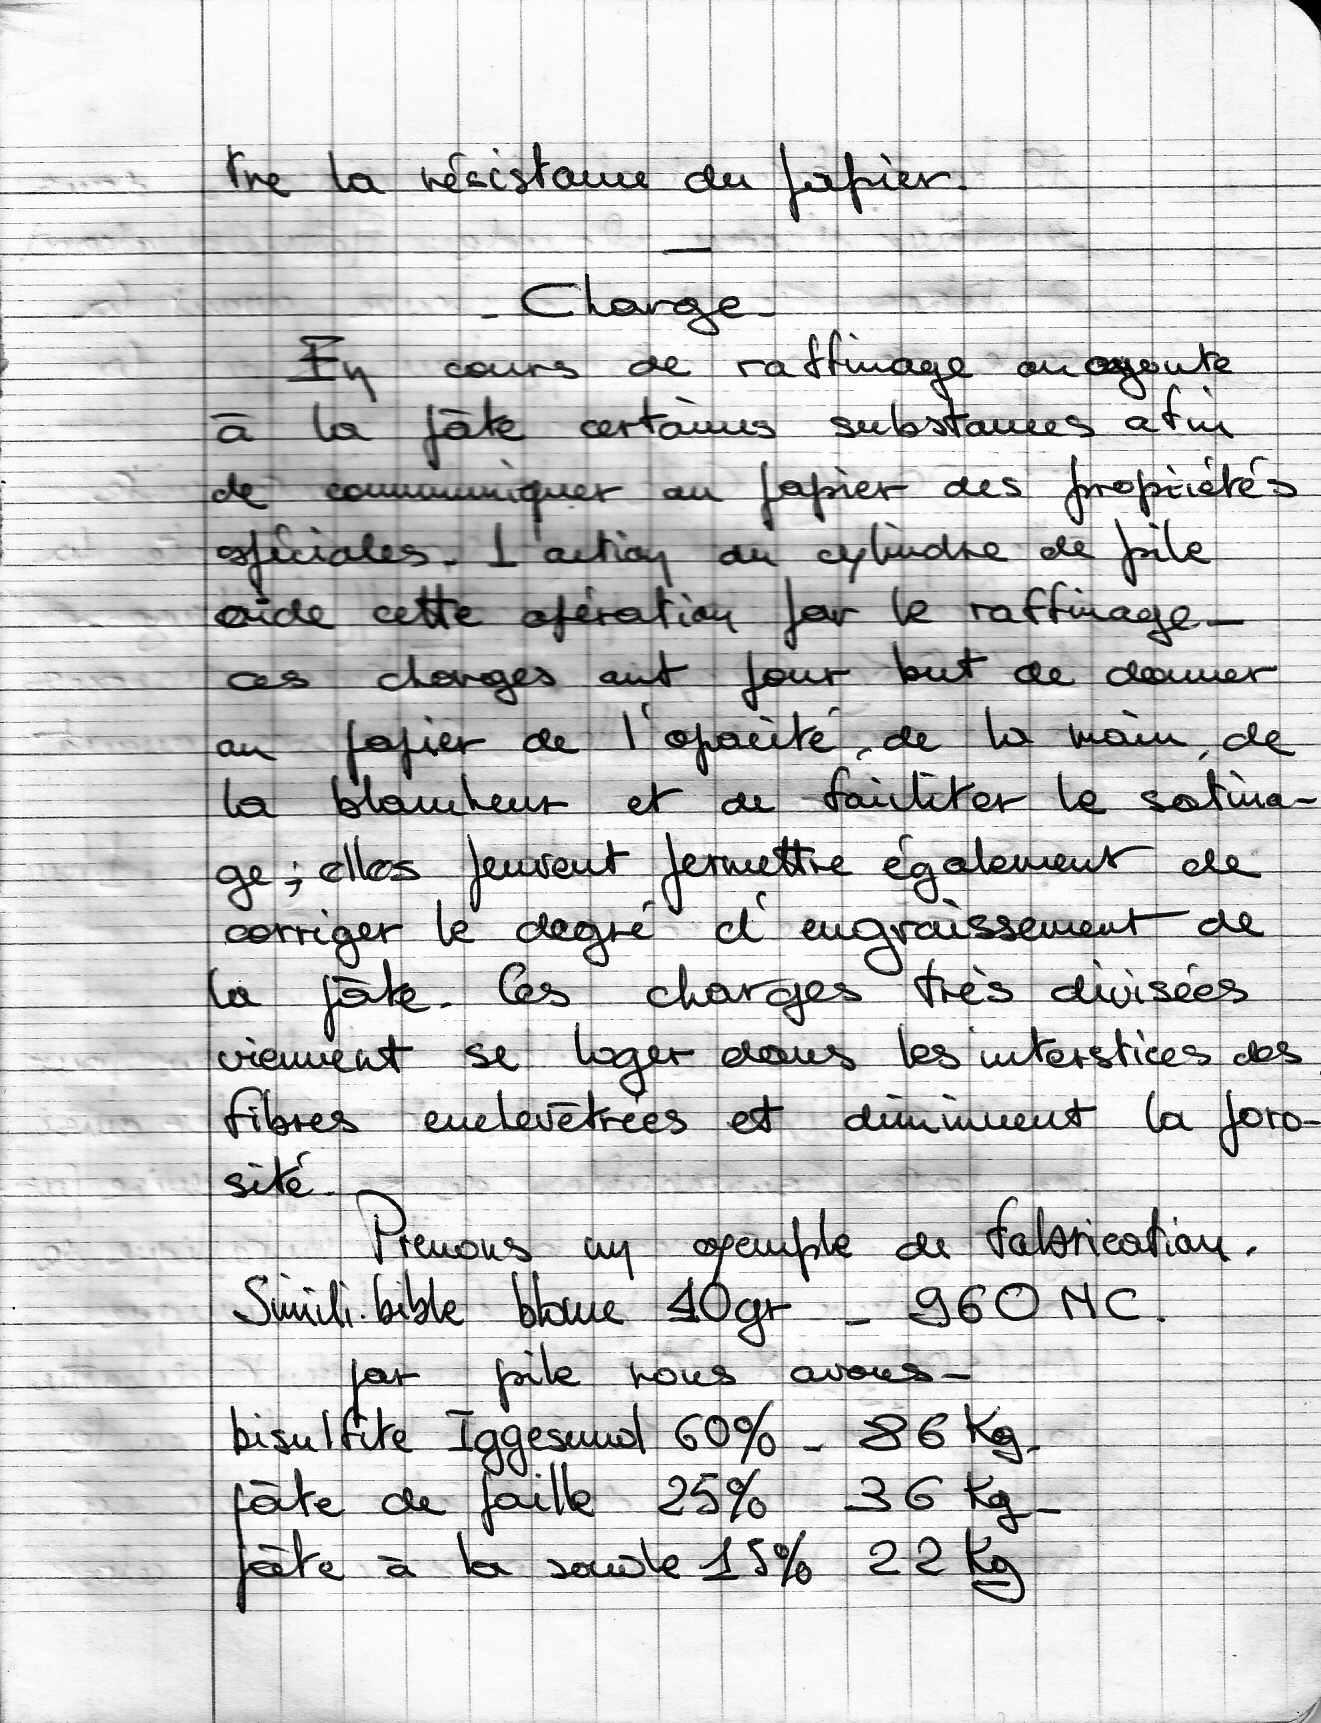 tre la résistance du papier.
—
- Charge -
En cours de raffinage on ajoute
à la pâte certaines substances afin
de communiquer au papier des propriétés
spéciales. L'action du cylindre de pile
aide cette opération par le raffinage -
ces charges ont pour but de donner
au papier de l'opacité, de la main, de
la blancheur et de faciliter le satina-
ge ; elles peuvent permettre également de
corriger le degré d'engraissement de
la pâte. Ces charges très divisées
viennent se loger dans les interstices des
fibres enchevêtrées et diminuent la poro-
sité.
Prenons un exemple de fabrication.
Simili.bible blanc 40gr - 960 MC.
par pile nous avons -
bisulfite Iggesund 60% - 86 Kg -
pâte de paille 25% 36 Kg -
pâte à la soude 15% 22 Kg